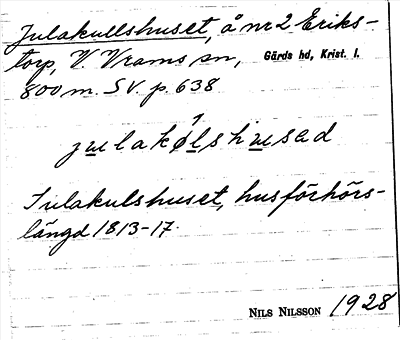 Julakullshuset, å nr 2 Eriks-
torp, V Vrams sn, Gärds hd, Krist. l.
800 m. SV. p. 638
julakølshusad
Julakulshuset, husförhörs-
längd 1813-17.
NILS NILSSON 1928